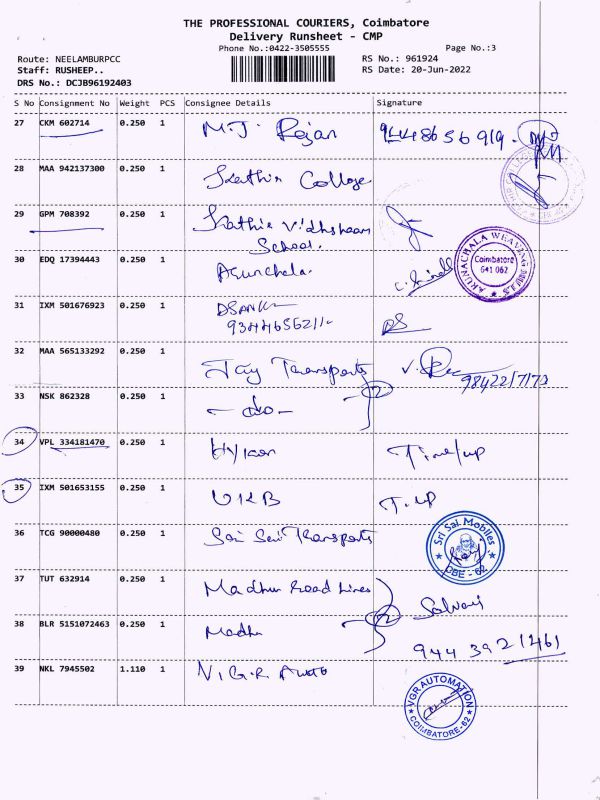 THE PROFESSIONAL COURIERS, Coimbatore
Delivery Runsheet - CMP
Phone No.:0422-3505555 Page No.:3
Route: NEELAMBURPCC RS No.: 961924
Staff: RUSHEEP.. RS Date: 20-Jun-2022
DRS No.: DCJB96192403
S No Consignment No Weight PCS Consignee Details Signature
27 CKM 602714 0.250 1 M.J. Rejan
28 MAA 942137300 0.250 1 Kathir College
29 GPM 708392 0.250 1 Kathir Vidhshaam
School.
30 EDQ 17394443 0.250 1 Arunchala.
ARUNACHALA WEAVING
Coimbatore
641 062
31 IXM 501676923 0.250 1
9344656211-
32 MAA 565133292 0.250 1 Jay Transports
33 NSK 862328 0.250 1 - do -
34 VPL 334181470 0.250 1 Hyicon Time/up
35 IXM 501653155 0.250 1 UKB T.up
36 TCG 90000480 0.250 1 Sai Sai Transports
Sri Sai Mobiles
CBE - 62
37 TUT 632914 0.250 1 Madhur Road Lines
38 BLR 5151072463 0.250 1 Madhu
944 392 1461
39 NKL 7945502 1.110 1 V.G.R Auto
VGR AUTOMATION
COIMBATORE-62